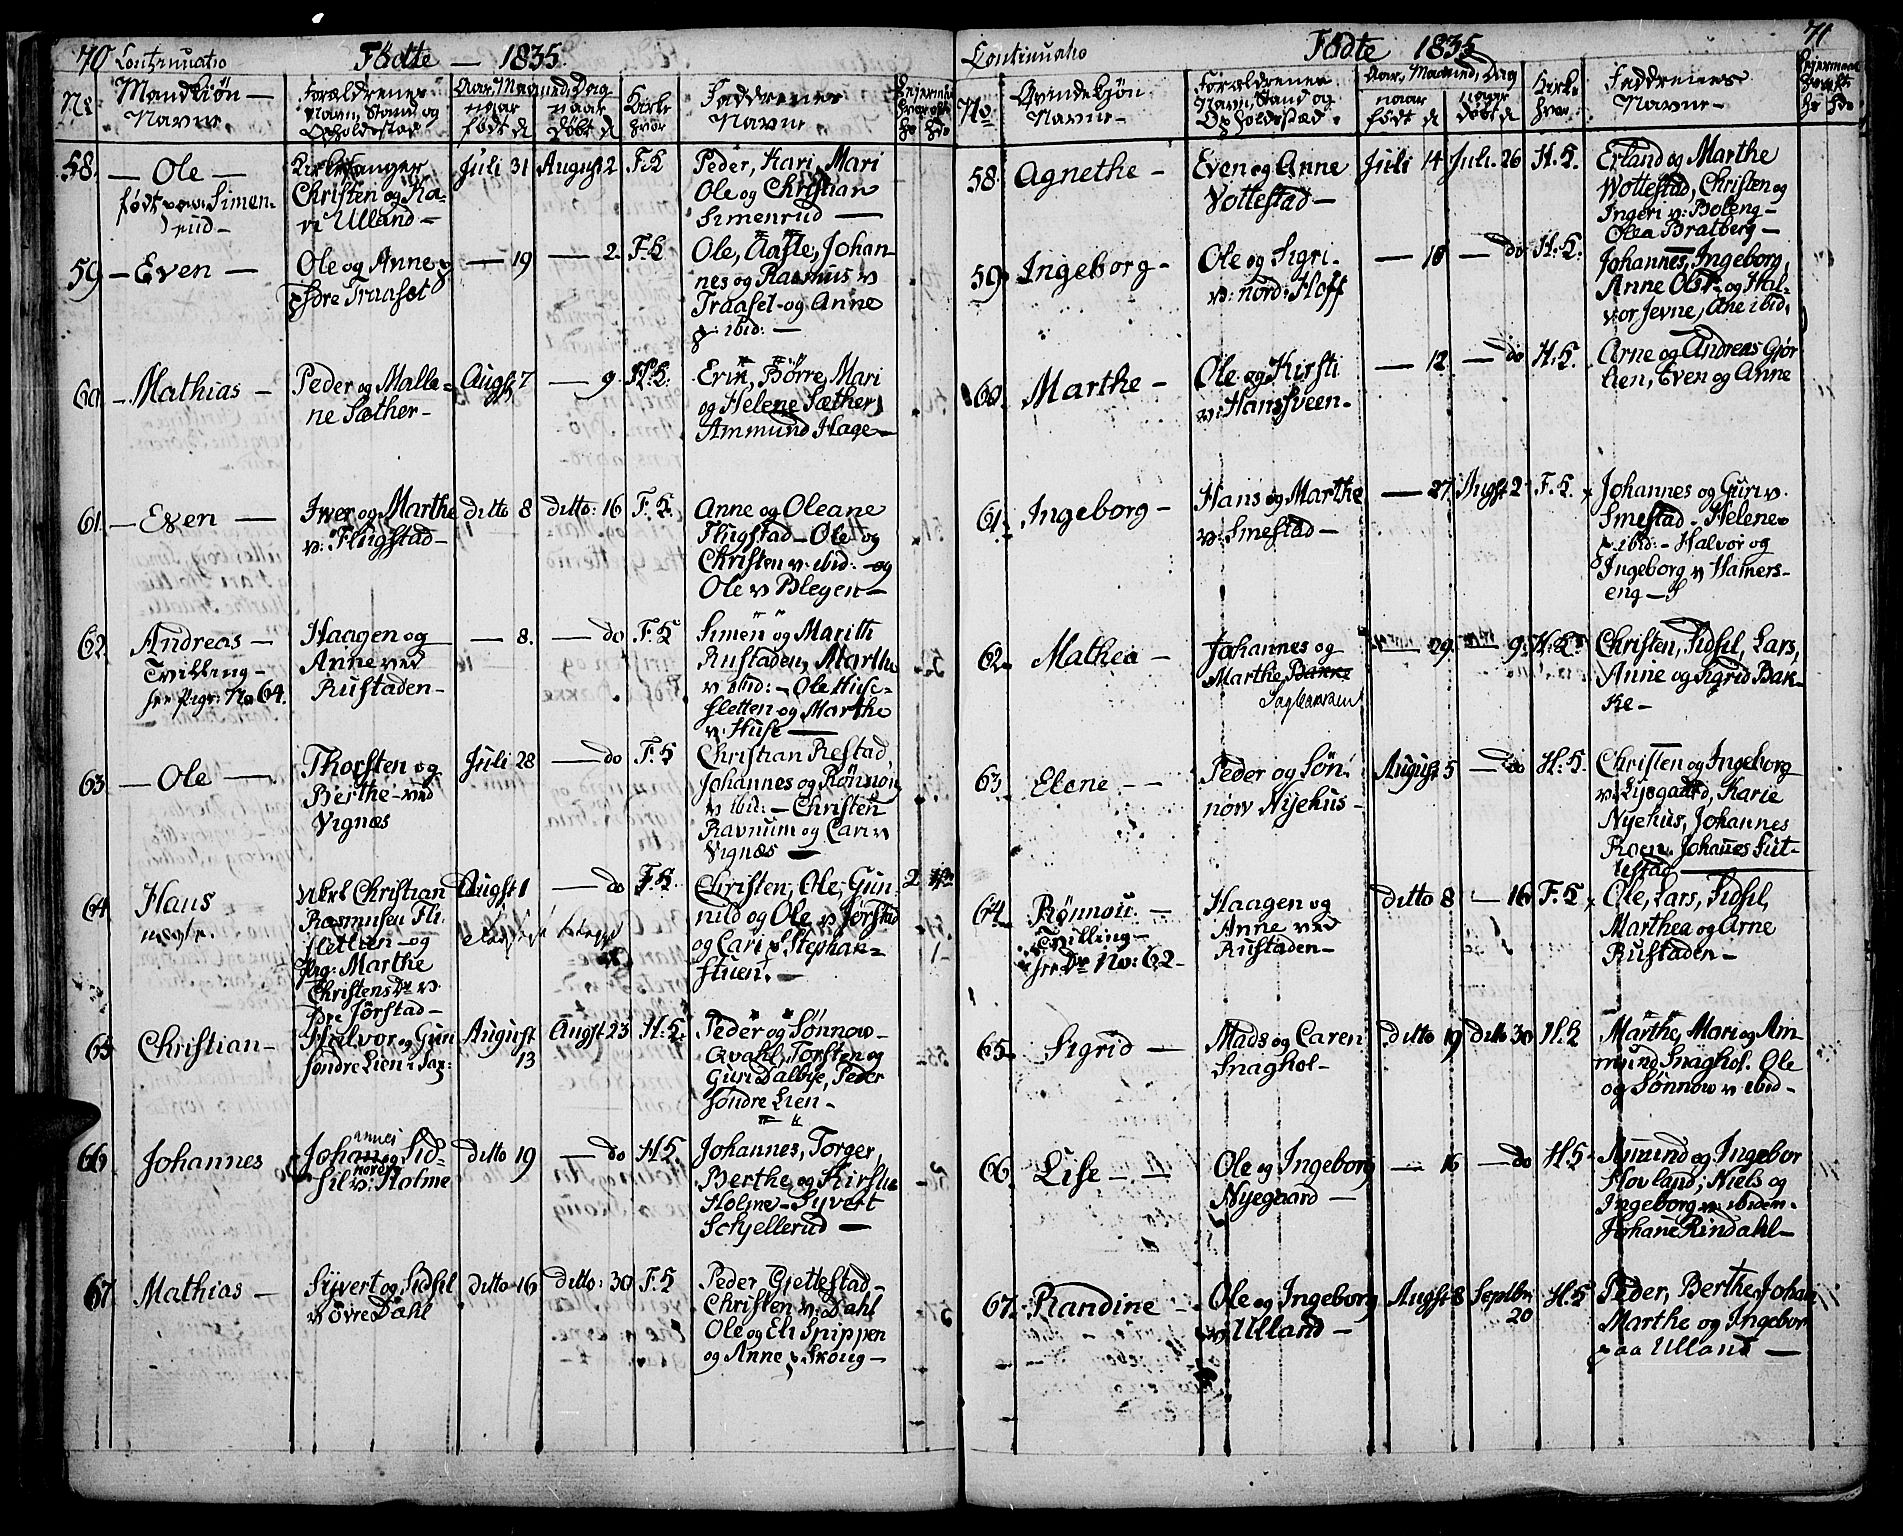 70 Continuatio Fødte — 1835.
No
Mandkiøn —
Navne
Forældrenes
Navn, Stand og
Opholdsstæd
Aar, Maaned, Dag
naar
født d
naar
døbt d
Kirke
hvor
Faddrenes
Navne
58. — Ole —
født paa Simen-
rud —
Kirkesanger
Christen og Ka-
ri Ulland —
Juli 31 August 2 F.K
Peder, Kari, Mari
Ole og Christian
Simenrud —
59 — Even —
Ole og Anne p
Søre Traaset
— 19 — 2 F.K
Ole, Aasle, Johan-
nes og Rasmus v
Traaset og Anne
p: ibid: —
60. — Mathias —
Peder og Malle-
ne Sæther —
Augst 7 — 9 H.K.
Børre, Mari
og Helene Sæther,
Ammund Hage —
61. — Even —
Iver og Marthe
v: Flugstad —
ditto 8 ditto: 16 F.K.
Anne og Oleane
Flugstad — Ole og
Christen v: ibid: — og
Ole v Blegen —
62. Andreas —
Tvilling —
see Pige: No 64.
Haagen og
Anne ved
Rustaden —
— 8. — do F.K
Simen og Marith
Rustaden, Marthe
v ibid: — Ole Huse-
sletten og Marthe
v: Huse —
63. — Ole —
Thorsten og
Berthe ved
Vignæs
Juli 28 — do F.K
Christian Restad,
Johannes og Rønnow
v ibid: — Christen
Ravnum og Cari v
Vignæs —
64. Hans
uægte.
Christian
Rasmusen
og
Pig: Marthe
Christens Dr v.
Søre Jørstad —
Augst 1 — do F.K.
Christen, Ole, Gun-
nild og Ole v Jørstad
og Cari v. Stephan-
stuen. —
65 Christian —
Halvor og Guri
Søndre Lien i Sax:
August
13
Augst 23 H.K
Peder og Sønnow
Qvahl, Torsten og
Guri Dalbye, Peder
Søndre Lien —
66. Johannes
Johannes og Sid-
sil v: nordre Holme
ditto 19 — do H.K
Johannes, Torger,
Berthe og Kirstie
Holme — Syvert
Schjellerud —
67. Mathias —
Syvert og Sidsil
v øvre Dahl
ditto 16 ditto: 30 F.K
Peder Gjettestad —
Christen v: Dahl
Ole og Eli Spippen
og Anne p Skoug —
Continuatio Fødte 1835 71
No.
Qvindekjøn
Navne —
Forældrenes
Navn, Stand og
Opholdsstæd.
Aar, Maaned, Dag
naar
født d
naar
døbt d
Kirke
hvor
Faddrenes
Navne —
58. Agnethe —
Even og Anne
Vottestad —
Juli 14 Juli. 26 H.K.
Erland og Marthe
Wottestad, Christen og
Ingeri v: Boleng —
Olea Bratberg —
59 Ingeborg —
Ole og Sigri
v: nord: Hoff
— 10 — do H.K.
Johannes, Ingeborg,
Anne Olst og Hal-
vor Jevne, Ane ibid.
60. Marthe —
Ole og Kirsti
v: Hansveen —
— 12 — do H.K.
Arne og Andreas Gjør
lien, Even og Anne
61. Ingeborg —
Hans og Marthe
v: Smestad —
— 27. Augst 2 F.K.
Johannes og Guri v.
Smestad — Helene
p ibid: — Halvor og
Ingeborg v Hamers-
eng —
62. Mathea —
Johannes og
Marthe Bakke
— 29. — 9. H.K
Christen, Sidsil, Lars,
Anne og Sigrid Bak-
ke —
63. Elene —
Peder og Søn-
now Nyehus —
August 5 — do H.K.
Christen og Ingeborg
v: Lysgaard, Karie
Nyehus, Johannes
Roen. Johannes Sut-
testad —
64. Rønnou —
Tvilling —
see Dr No: 62 —
Haagen og
Anne ved
Rustaden —
ditto 8 — 16 F.K
Ole, Lars, Sidsil,
Marthea og Arne
Rustaden —
65. Sigrid —
Mads og Caren
Snaghol —
ditto 19 ditto 30 H.K
Marthe, Mari og Am-
mund Snaghol. Ole
og Sønnow v ibid —
66. Lise —
Ole og Ingeborg
Nyegaard —
— 16 — do H.K
Amund og Ingebor
Hovland; Niels og
Ingeborg v: ibidem.
Johane Rindahl —
67. Randine —
Ole og Ingeborg
v: Ulland —
Augst 8 Septbr
20
H.K
Peder, Berthe, Johan
Marthe og Ingebor
paa Ulland —